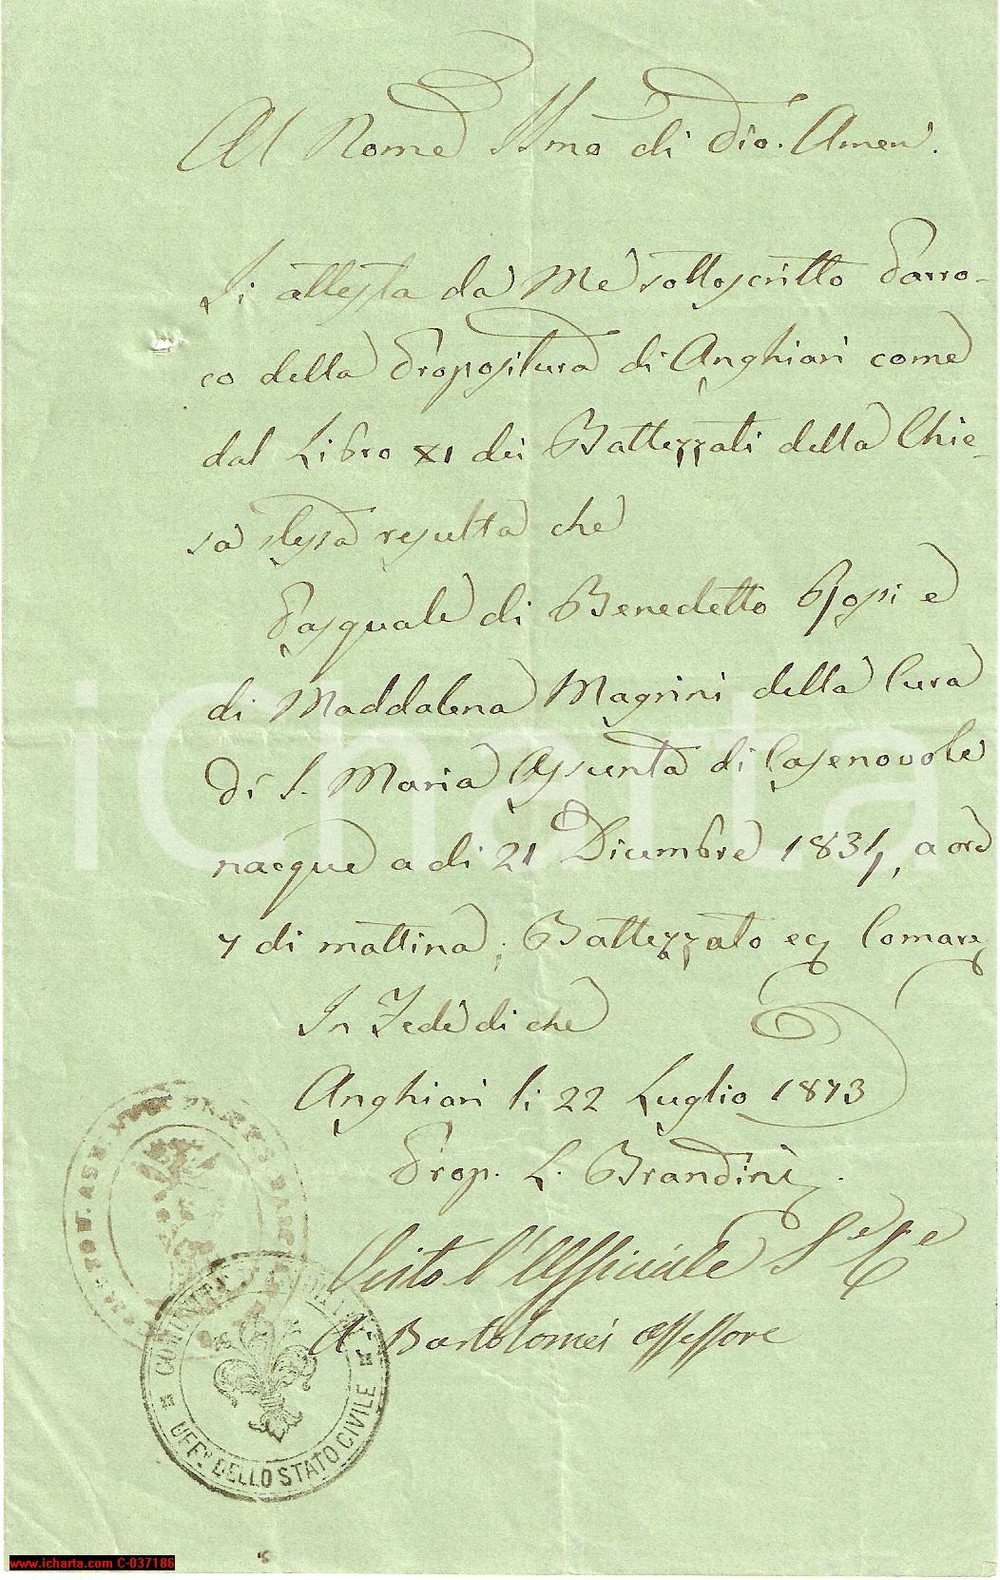 Al Nome SSmo di Dio. Amen.
Si attesta da Me sottoscritto Parro-
co della Propositura di Anghiari come
dal Libro XI dei Battezzati della Chie-
sa stessa resulta che
Pasquale di Benedetto Rossi e
di Maddalena Magrini della Cura
di S. Maria Assunta di Casenovole
nacque a di 21 Dicembre 1834, a ore
7 di mattina; Battezzato ec. Comare
In Fede di che
Anghiari li 22 Luglio 1873
Prop. L. Brandini
Visto l'Uffiziale
Bartolomei assessore
UFF. DELLO STATO CIVILE
iCharta
www.icharta.com C-037186